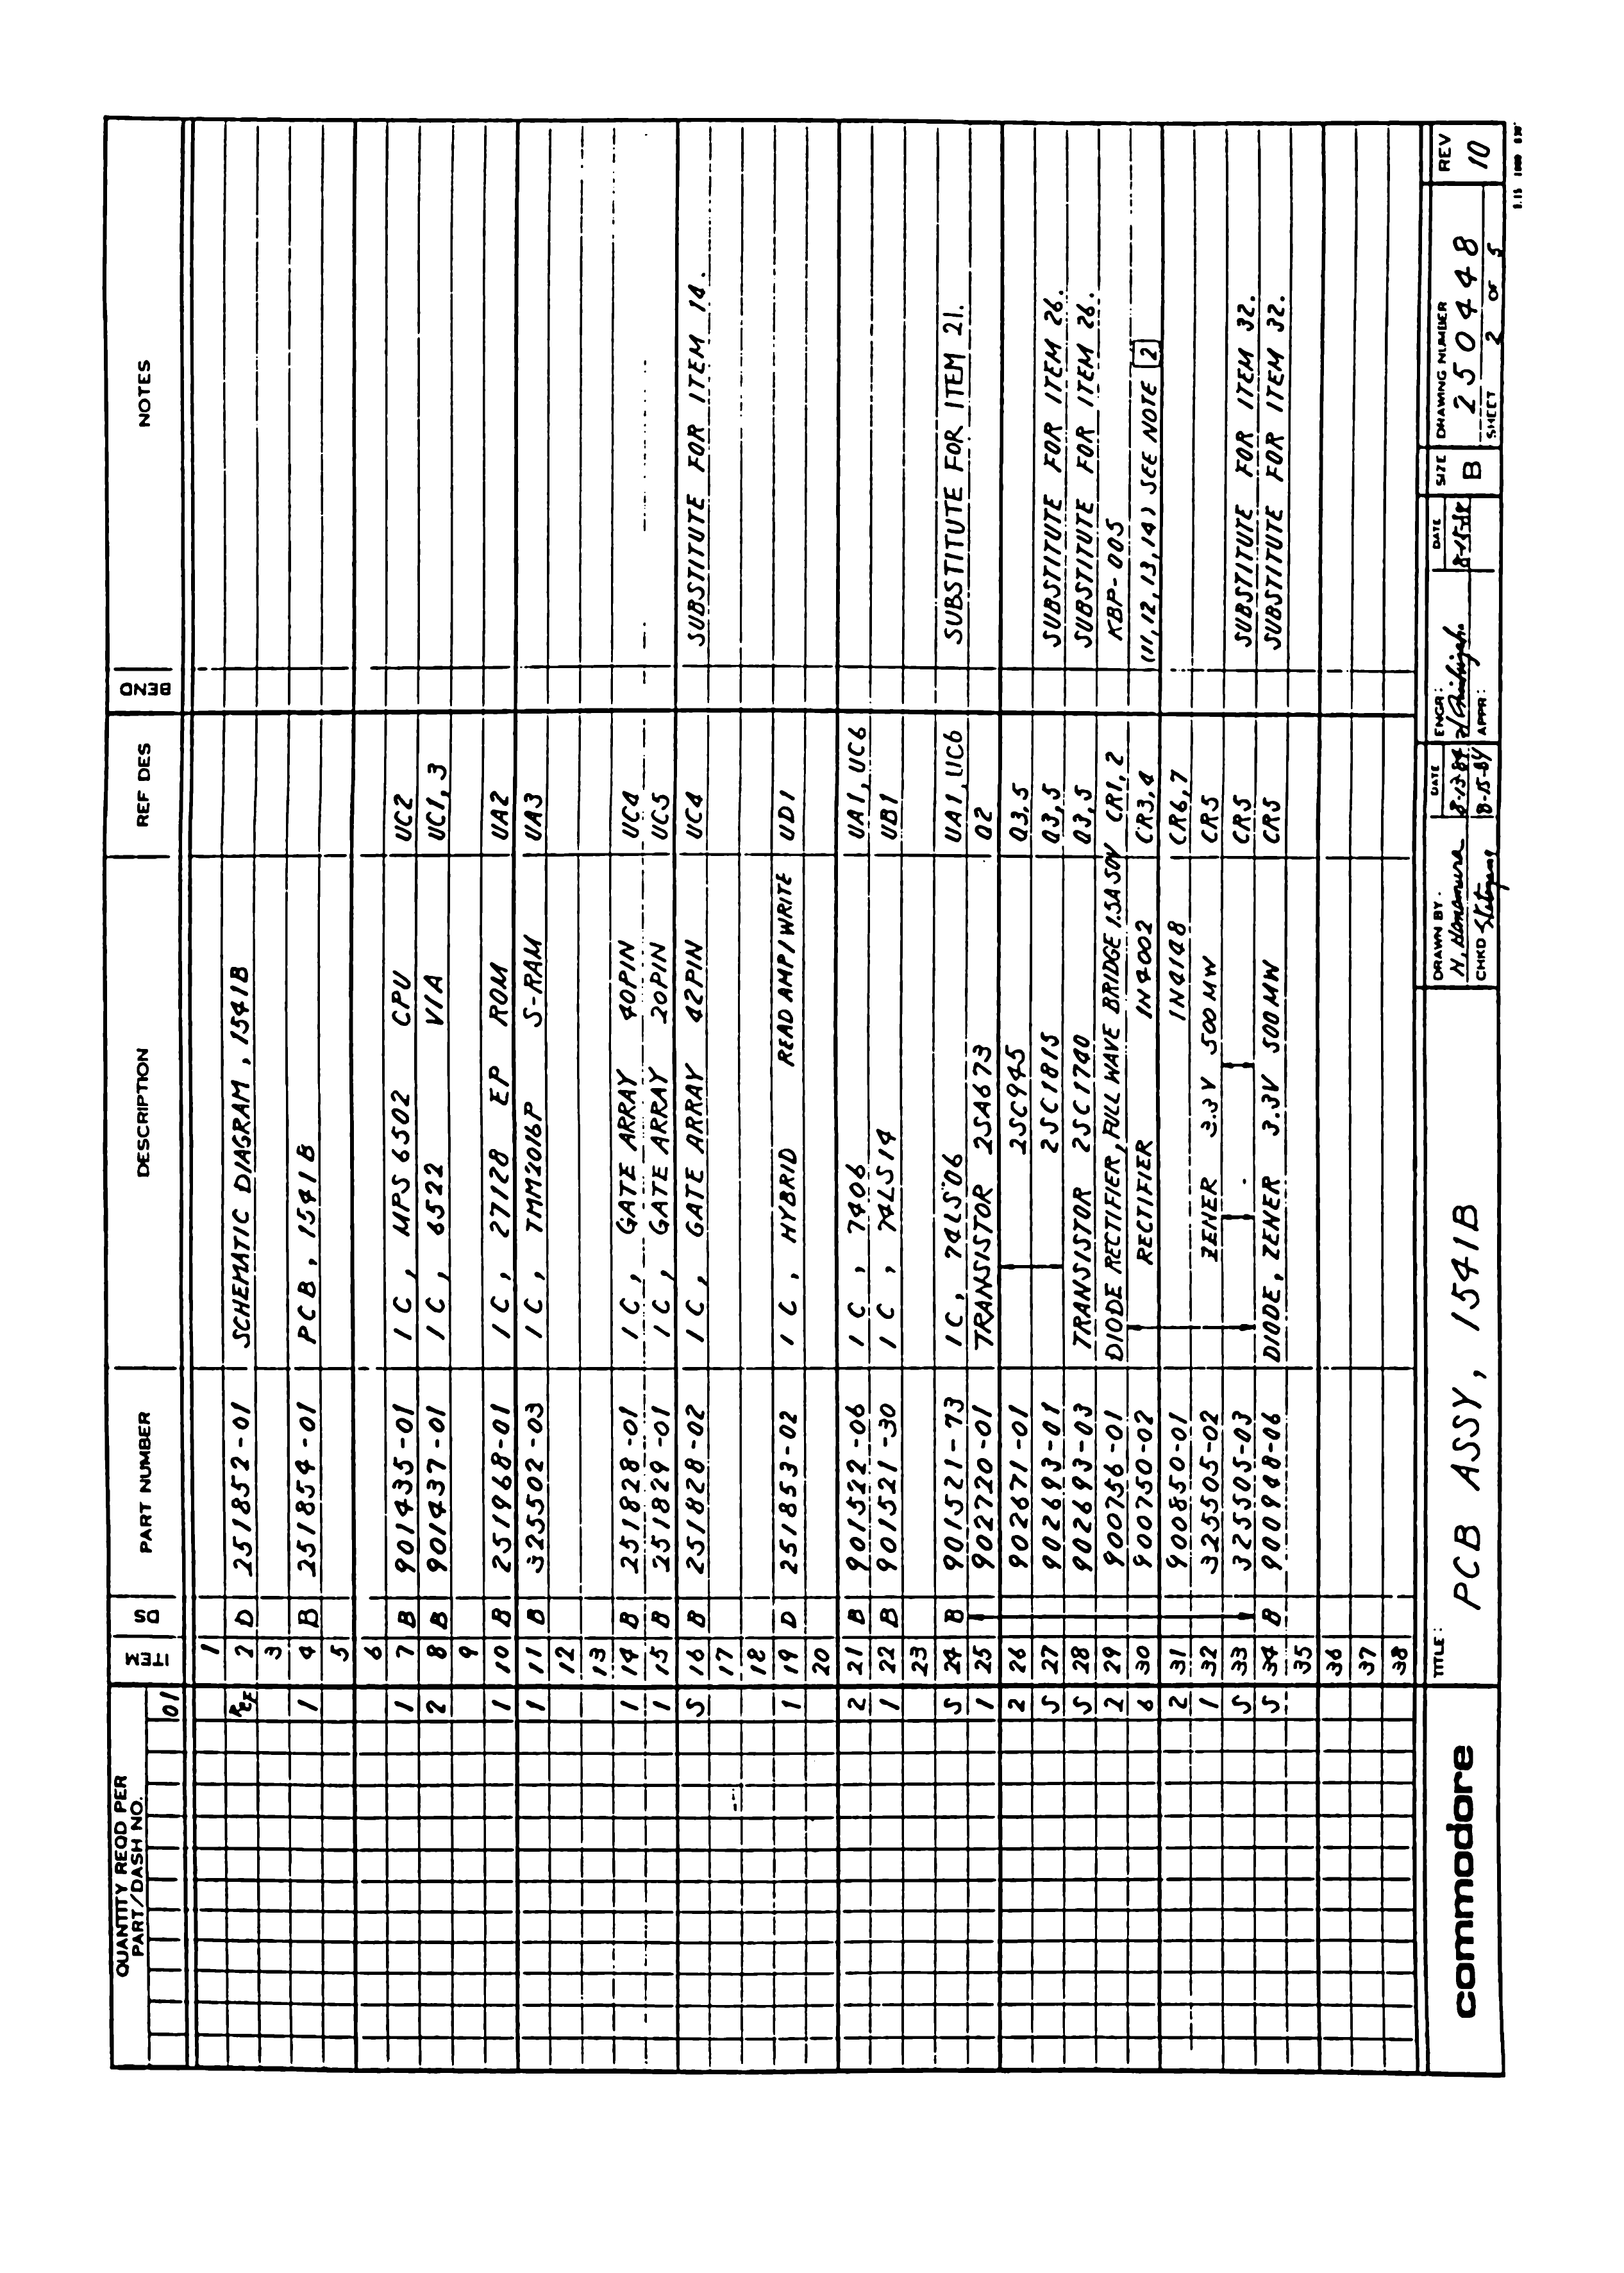 QUANTITY REQD PER PART/DASH NO. ITEM DS PART NUMBER DESCRIPTION REF DES BENO NOTES
01
1
REF 2 D 251852-01 SCHEMATIC DIAGRAM, 1541B
3
1 4 B 251854-01 PCB, 1541B
5
6
1 7 B 901435-01 IC, MPS 6502 CPU UC2
2 8 B 901437-01 IC, 6522 VIA UC1,3
9
1 10 B 251968-01 IC, 27128 EP ROM UA2
1 11 B 325502-03 IC, TMM2016P S-RAM UA3
12
13
1 14 B 251828-01 IC, GATE ARRAY 40PIN UC4
1 15 B 251829-01 IC, GATE ARRAY 20PIN UC5
S 16 B 251828-02 IC, GATE ARRAY 42PIN UC4 SUBSTITUTE FOR ITEM 14.
17
18
1 19 D 251853-02 IC, HYBRID READ AMP/WRITE UD1
20
2 21 B 901522-06 IC, 7406 UA1, UC6
1 22 B 901521-30 IC, 74LS14 UB1
23
S 24 B 901521-73 IC, 74LS'06 UA1, UC6 SUBSTITUTE FOR ITEM 21.
1 25 902720-01 TRANSISTOR 2SA673 Q2
2 26 902671-01 2SC945 Q3,5
S 27 902693-01 2SC1815 Q3,5 SUBSTITUTE FOR ITEM 26.
S 28 902693-03 TRANSISTOR 2SC1740 Q3,5 SUBSTITUTE FOR ITEM 26.
2 29 900756-01 DIODE RECTIFIER, FULL WAVE BRIDGE 1.5A 50V CR1,2 KBP-005
6 30 900750-02 RECTIFIER 1N4002 CR3,4 (11,12,13,14) SEE NOTE 2
2 31 900850-01 1N4148 CR6,7
1 32 325505-02 ZENER 3.3V 500MW CR5
S 33 325505-03 CR5 SUBSTITUTE FOR ITEM 32.
S 34 B 900948-06 DIODE, ZENER 3.3V 500MW CR5 SUBSTITUTE FOR ITEM 32.
35
36
37
38
commodore
TITLE:
PCB ASSY, 1541B
DRAWN BY. DATE ENGR: DATE SIZE DRAWING NUMBER REV
8-13-84 8-15-84 B 250448 10
CHKD 8-15-84 APPR: SHEET 2 OF 5